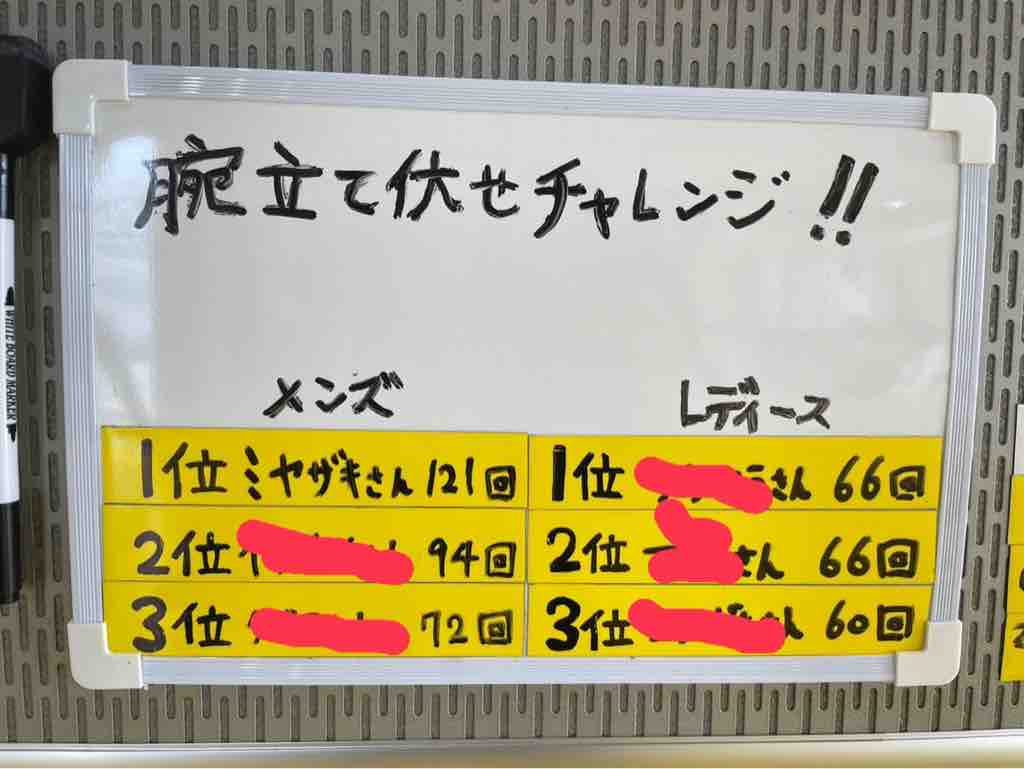 腕立て伏せチャレンジ!!
メンズ
1位 ミヤザキさん 121回
2位 94回
3位 72回
レディース
1位 さん 66回
2位 さん 66回
3位 60回
WHITE BOARD MARKER